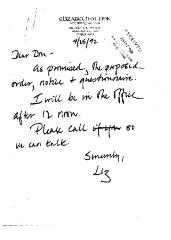 ELIZABETH
4/25/92
Dear Don -
As promised, the proposed
order, notice + questionnaire.
I will be in the office
after 12 noon.
Please call so
we can talk.
Sincerely,
Liz